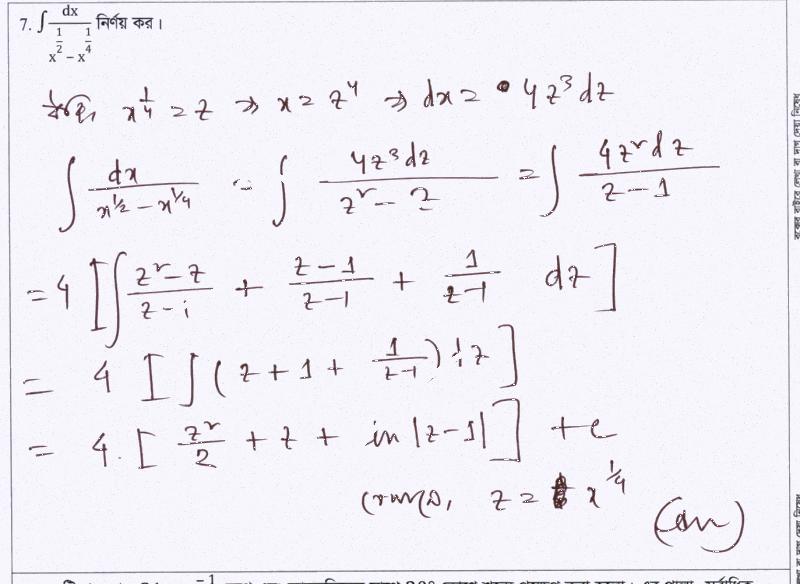 7. ∫ dx / (x^(1/2) − x^(1/4)) নির্ণয় কর।
ধরি, x^(1/4) = z ⇒ x = z^4 ⇒ dx = 4z^3 dz
∫ dx / (x^(1/2) − x^(1/4)) = ∫ 4z^3 dz / (z^2 − z) = ∫ 4z^2 dz / (z − 1)
= 4 [∫ (z^2 − z)/(z − 1) + (z − 1)/(z − 1) + 1/(z − 1) dz]
= 4 [∫ (z + 1 + 1/(z − 1)) dz]
= 4. [z^2/2 + z + ln |z − 1|] + c
z = x^(1/4)
(Ans)